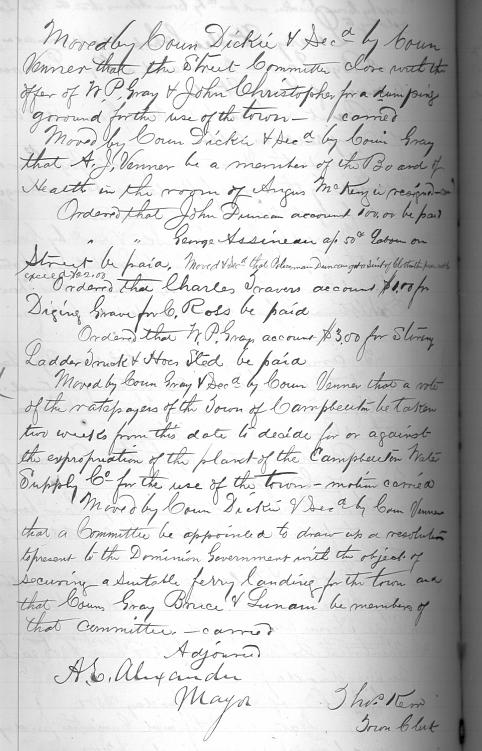 Moved by Coun Dickie & Secd by Coun
Venner that the Street Committee close with the
offer of W. P. Gray & John Christopher for a dumping
goround for the use of the town — carried
Moved by Coun Dickie & Secd by Coun Gray
that A. J. Venner be a member of the Board of
Health in the room of Angus McKenzie resigned
Ordered that John Duncan account 100.00 be paid
" " George Assineau a/c 50c Labour on
Street be paid. Moved & Secd that Policeman Duncan get a Suit of Cloths
exceed $22.00
Ordered that Charles Travers account $1.00 for
Diging Grave for C. Ross be paid
Ordered that W. P. Gray account $3.00 for Storing
Ladder Truck & Hoes Sled be paid
Moved by Coun Gray & Secd by Coun Venner that a vote
of the ratepayers of the Town of Campbellton be taken
two weeks from this date to decide for or against
the expropriation of the plant of the Campbellton Water
Supply Co for the use of the town — motion carried
Moved by Coun Dickie & Secd by Coun Venner
that a Committee be appointed to draw up a resolution
to present to the Dominion Government with the object of
securing a suitable ferry landing for the town and
that Couns Gray Bruce & Lunam be members of
that committee — carried
Adjourned
A. E. Alexander
Mayor
Thos Kerr
Town Clerk